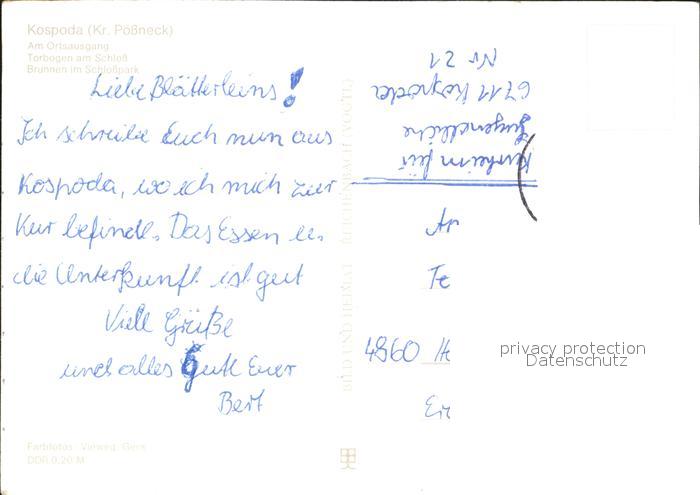 Kospoda (Kr. Pößneck)
Am Ortsausgang
Torbogen am Schloß
Brunnen im Schloßpark
Liebe Blätterleins!
Ich schreibe Euch nun aus
Kospoda, wo ich mich zur
Kur befinde. Das Essen u.
die Unterkunft ist gut
Viele Grüße
und alles Gute Euer
Bert
Farbfotos: Vieweg, Gera
DDR 0,20 M
Kurheim für
Jugendliche
6711 Kospoda
Nr 21
An
Fe
4860 H
privacy protection
Datenschutz